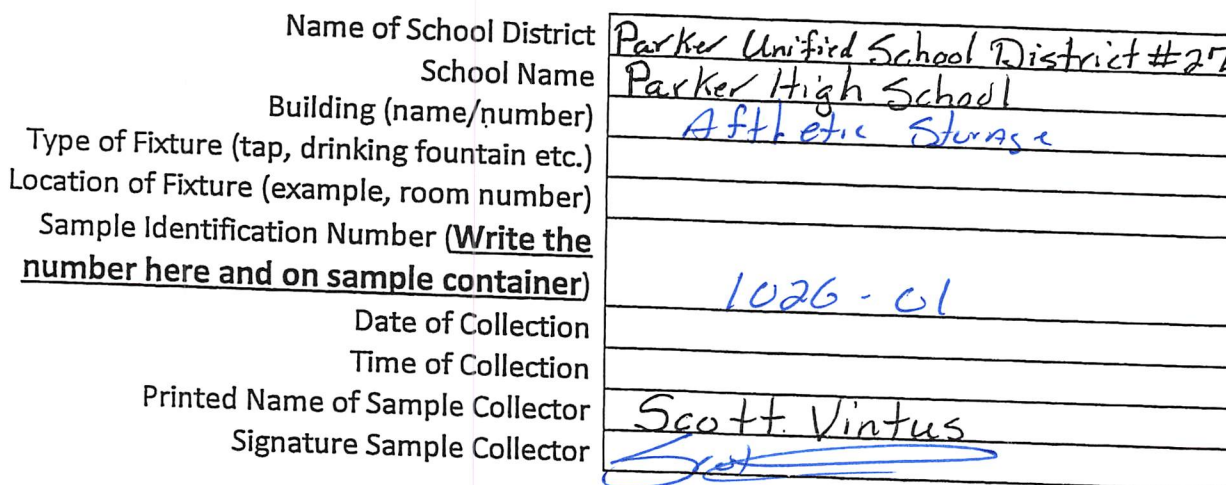 Name of School District Parker Unified School District #27
School Name Parker High School
Building (name/number) Afthetic Storage
Type of Fixture (tap, drinking fountain etc.)
Location of Fixture (example, room number)
Sample Identification Number (Write the
number here and on sample container) 1026-01
Date of Collection
Time of Collection
Printed Name of Sample Collector Scott Vintus
Signature Sample Collector Scot